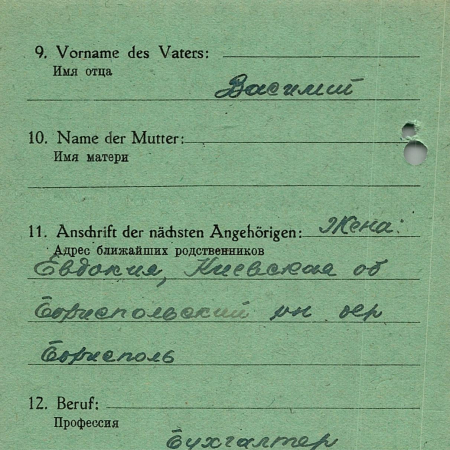 9. Vorname des Vaters:
Имя отца
Василий
10. Name der Mutter:
Имя матери
11. Anschrift der nächsten Angehörigen: Жена:
Адрес ближайших родственников
Евдокия, Киевская об
Бориспольский рн дер
Борисполь
12. Beruf:
Профессия
Бухгалтер